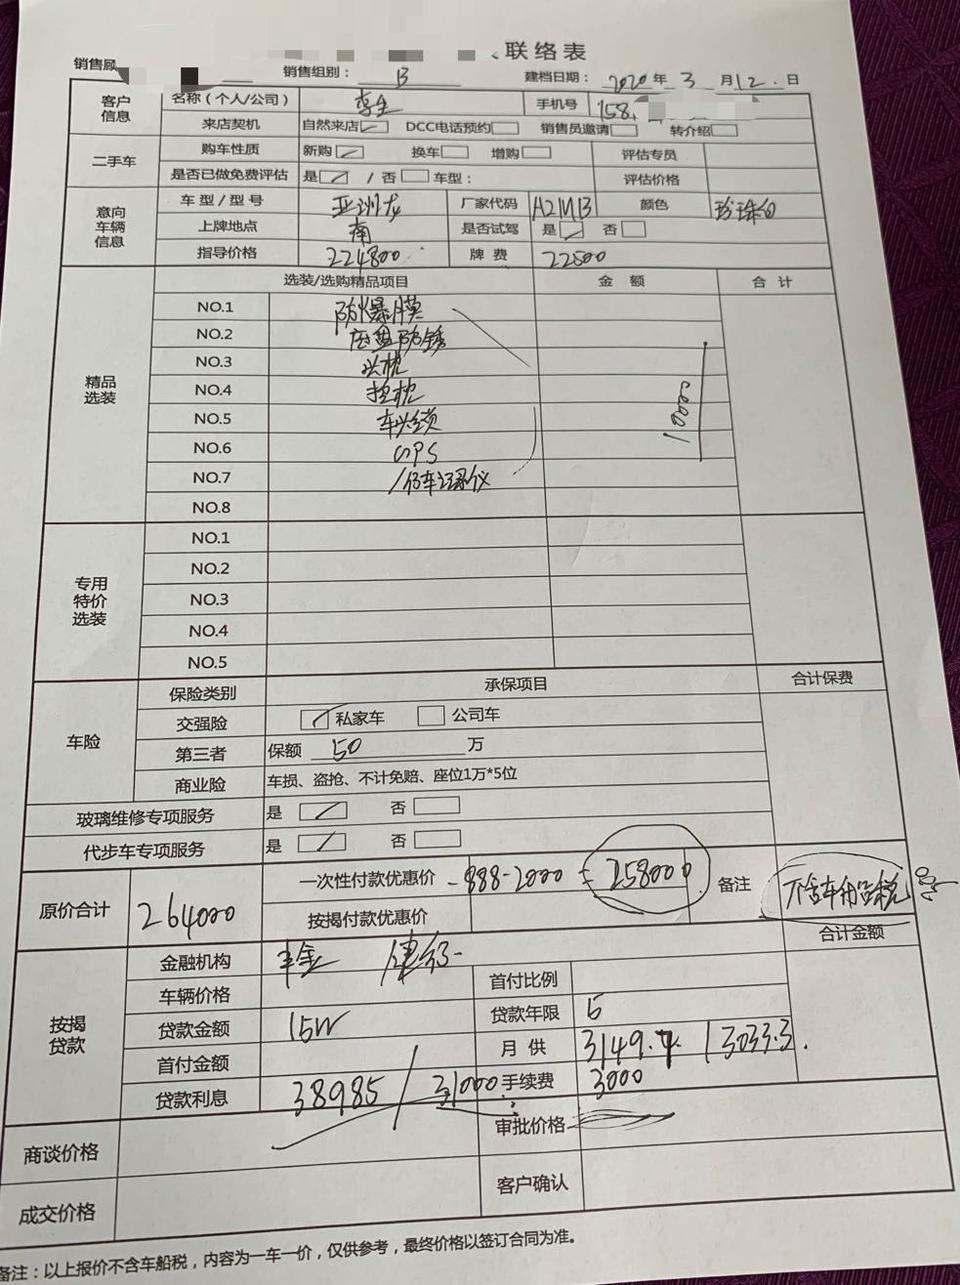 联络表
销售顾
销售组别： B 建档日期： 2020年 3 月 12 日
客户信息 名称（个人/公司） 李生 手机号 158
来店契机 自然来店 DCC电话预约 销售员邀请 转介绍
二手车 购车性质 新购 换车 增购 评估专员
是否已做免费评估 是 / 否 车型： 评估价格
意向车辆信息 车型/型号 亚洲龙 厂家代码 A21MB 颜色 珍珠白
上牌地点 南 是否试驾 是 否
指导价格 224800 牌费 22800
精品选装 选装/选购精品项目 金额 合计
NO.1 防爆膜
NO.2 底盘防锈
NO.3 头枕
NO.4 抱枕
NO.5
NO.6 GPS
NO.7 行车记录仪
NO.8
专用特价选装 NO.1
NO.2
NO.3
NO.4
NO.5
车险 保险类别 承保项目 合计保费
交强险 私家车 公司车
第三者 保额 50 万
商业险 车损、盗抢、不计免赔、座位1万*5位
玻璃维修专项服务 是 否
代步车专项服务 是 否
原价合计 264000 一次性付款优惠价 -888-2000 = 258000 备注 不含车船税
按揭付款优惠价 合计金额
按揭贷款 金融机构 丰金 建行 首付比例
车辆价格 贷款年限 5
贷款金额 15W 月供 3149.7 / 3033.3
首付金额 手续费 3000
贷款利息 38985 / 31000
商谈价格 审批价格
成交价格 客户确认
备注：以上报价不含车船税，内容为一车一价，仅供参考，最终价格以签订合同为准。